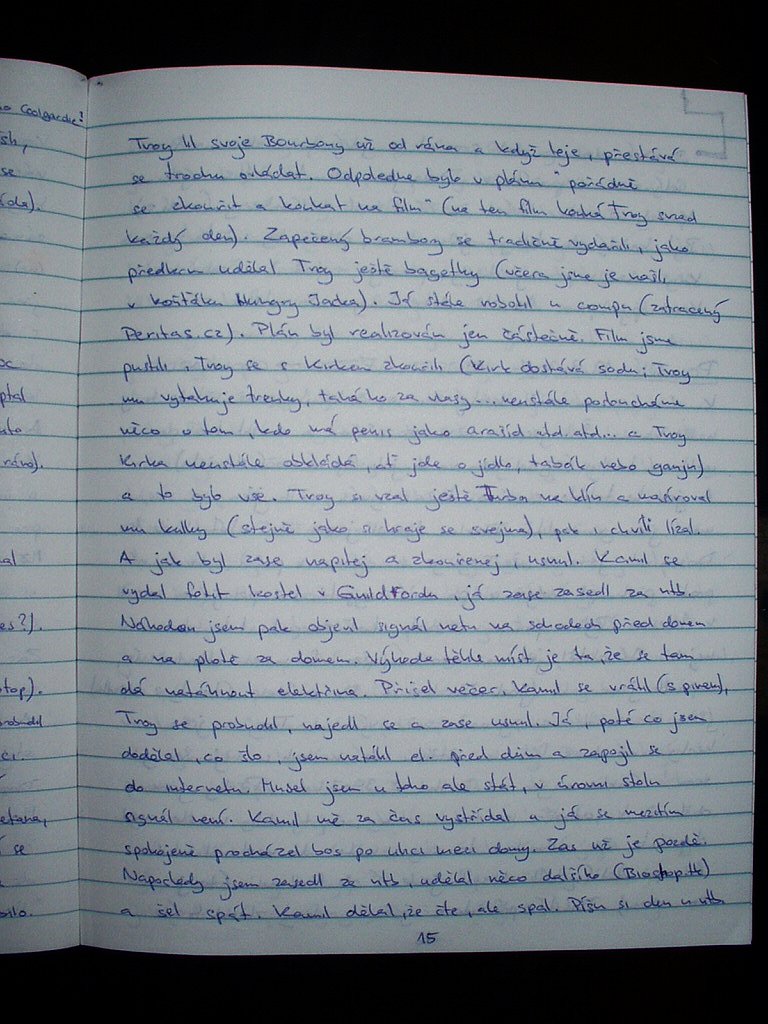 o Coolgardie!
sh,
se
Troy lil svoje Bourbony už od rána a když leje, přestává
se trochu ovládat. Odpoledne bylo v plánu "pořádně
se zkouřit a koukat na film" (na ten film kouká Troy snad
každý den). Zapečený brambory se tradičně vydařili, jako
předkrm udělal Troy ještě bagetky (včera jsme je našli
v košťáku Hungry Jacka). Já stále robotil u compu (zatracený
Peritas.cz). Plán byl realizován jen částečně. Film jsme
pustili, Troy se s Kirkem zkouřili (Kirk dostává sodu; Troy
mu vytahuje trenky, tahá ho za vlasy... neustále posloucháme
něco o tom, kdo má penis jako arašíd atd. atd... a Troy
Kirka neustále obkládá, ať jde o jídlo, tabák nebo ganju)
a to bylo vše. Troy si vzal ještě Turba na klín a masíroval
mu kulky (stejně jako si hraje se svejma), pak i chvíli lízal.
A jak byl zase napitej a zkouřenej, usnul. Kamil se
vydal fotit kostel v Guildfordu, já zase zasedl za ntb.
Náhodou jsem pak objevil signál netu na schodech před domem
a na plotě za domem. Výhoda těhle míst je ta, že se tam
dá natáhnout elektřina. Přišel večer. Kamil se vrátil (s pivem),
Troy se probudil, najedl se a zase usnul. Já, poté co jsem
dodělal, co šlo, jsem natáhl el. před dům a zapojil se
do internetu. Musel jsem u toho ale stát, v úrovni stolu
signál není. Kamil mě za čas vystřídal a já se mezitím
spokojeně procházel bos po ulici mezi domy. Zas už je pozdě.
Naposledy jsem zasedl za ntb, udělal něco dalšího (Bioshop.tk)
a šel spát. Kamil dělal, že čte, ale spal. Píšu si den u ntb
15